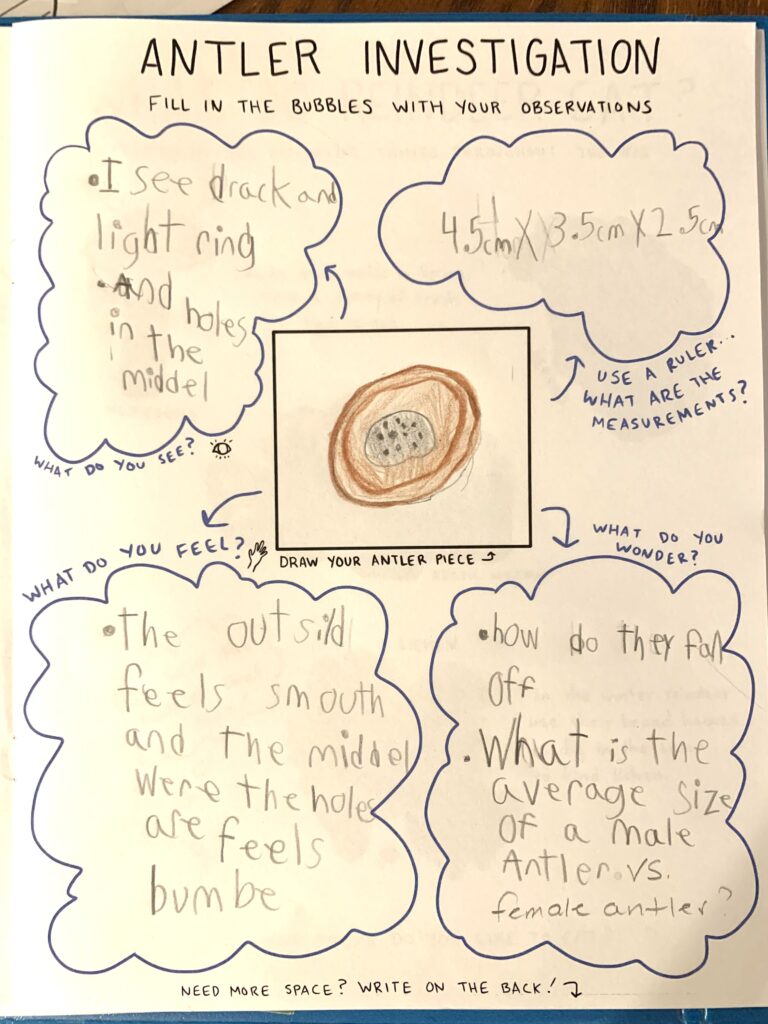 ANTLER INVESTIGATION
FILL IN THE BUBBLES WITH YOUR OBSERVATIONS
•I see drack and
light ring
•And holes
in the
middel
WHAT DO YOU SEE?
4.5cm X 3.5cm X 2.5cm
USE A RULER...
WHAT ARE THE
MEASUREMENTS?
DRAW YOUR ANTLER PIECE
WHAT DO YOU FEEL?
•the outsid
feels smouth
and the middel
were the holes
are feels
bumbe
WHAT DO YOU
WONDER?
•how do they fall
off
•What is the
average size
of a male
Antler vs.
female antler?
NEED MORE SPACE? WRITE ON THE BACK!